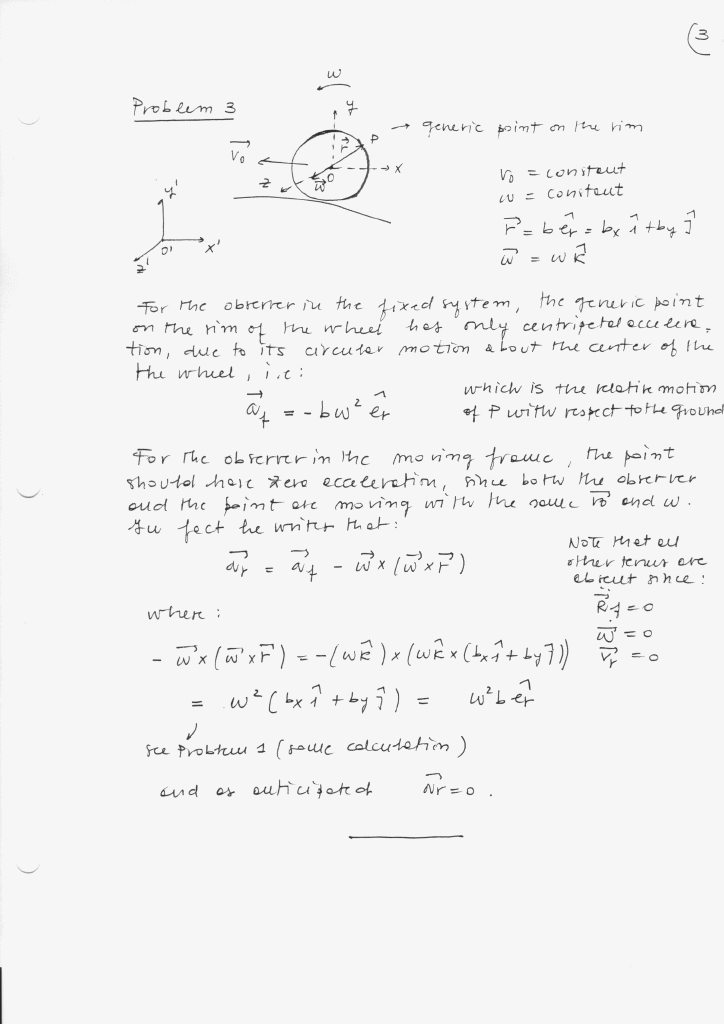 3
Problem 3
ω
y
P → generic point on the rim
r⃗
v⃗₀
x
z
ω⃗
O
v₀ = constant
ω = constant
r⃗ = b ê_r = b_x î + b_y ĵ
ω⃗ = ω k̂
y'
O'
x'
z'
For the observer in the fixed system, the generic point
on the rim of the wheel has only centripetal accelera-
tion, due to its circular motion about the center of the
the wheel, i.e:
a⃗_f = - b ω² ê_r
which is the relative motion
of P with respect to the ground
For the observer in the moving frame, the point
should have zero acceleration, since both the observer
and the point are moving with the same v⃗₀ and ω.
In fact he writes that:
a⃗_r = a⃗_f - ω⃗ × (ω⃗ × r⃗)
Note that all
other terms are
absent since:
R̈⃗_f = 0
ω̇⃗ = 0
v⃗_r = 0
where:
- ω⃗ × (ω⃗ × r⃗) = - (ω k̂) × (ω k̂ × (b_x î + b_y ĵ))
= ω² (b_x î + b_y ĵ) = ω² b ê_r
see Problem 1 (same calculation)
and as anticipated a⃗_r = 0.